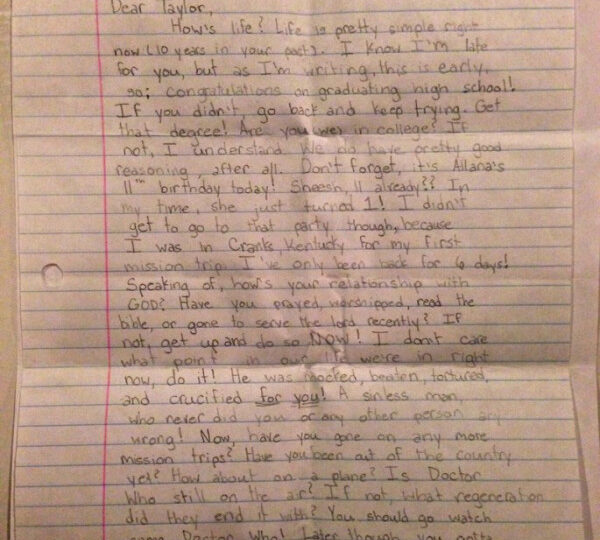 Dear Taylor,
How's life? Life is pretty simple right
now (10 years in your past). I know I'm late
for you, but as I'm writing, this is early,
so; congratulations on graduating high school!
If you didn't go back and keep trying. Get
that degree! Are you (we) in college? If
not, I understand. We do have pretty good
reasoning, after all. Don't forget, it's Allana's
11th birthday today! Sheesh, 11 already?? In
my time, she just turned 1! I didn't
get to go to that party though, because
I was in Cranks, Kentucky for my first
mission trip. I've only been back for 6 days!
Speaking of, how's your relationship with
GOD? Have you prayed, worshipped, read the
bible, or gone to serve the lord recently? If
not, get up and do so NOW! I don't care
what point in our life we're in right
now, do it! He was mocked, beaten, tortured,
and crucified for you! A sinless man,
who never did you or any other person any
wrong! Now, have you gone on any more
mission trips? Have you been out of the country
yet? How about on a plane? Is Doctor
Who still on the air? If not, what regeneration
did they end it with? You should go watch
some Doctor Who! Later though, you gotta